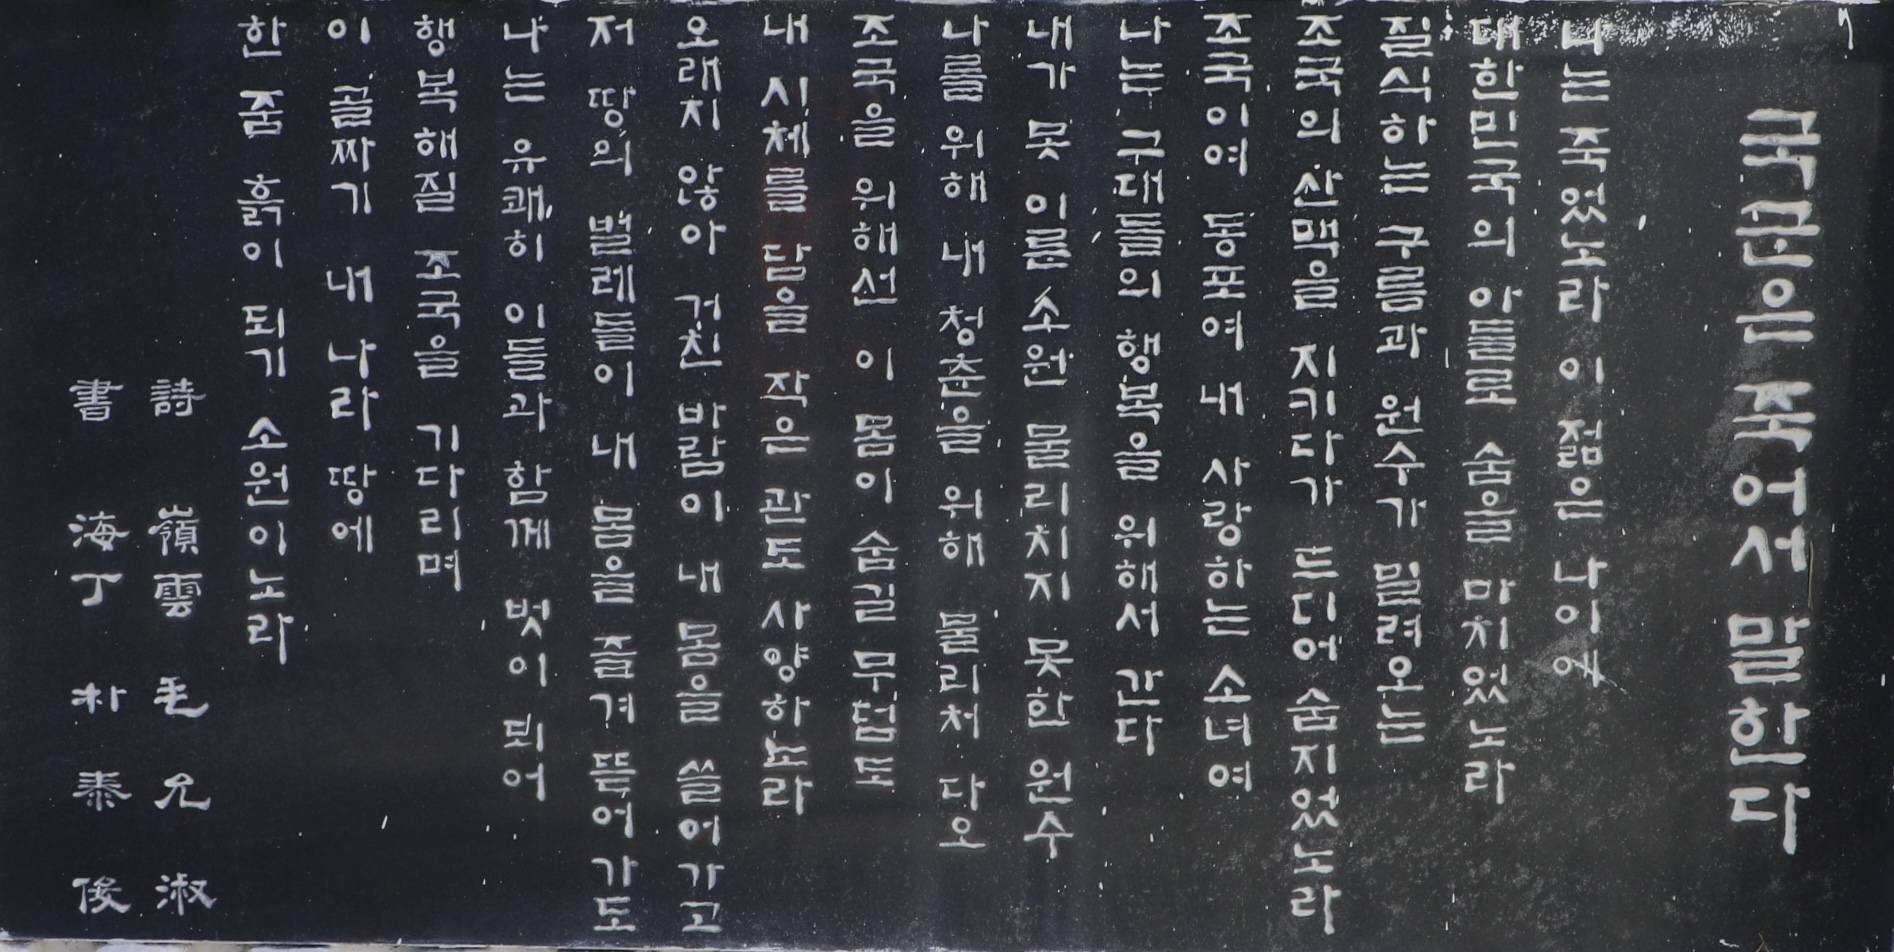 국군은 죽어서 말한다
나는 죽었노라 이 젊은 나이에
대한민국의 아들로 숨을 마치었노라
질식하는 구름과 원수가 밀려오는
조국의 산맥을 지키다가 드디어 숨지었노라
조국이여 동포여 내 사랑하는 소녀여
나는 구대들의 행복을 위해서 간다
내가 못 이룬 소원 물리치지 못한 원수
나를 위해 내 청춘을 위해 물리처 다오
조국을 위해선 이 몸이 숨길 무덤도
내 시체를 담을 작은 관도 사양하노라
오래지 않아 거친 바람이 내 몸을 쓸어가고
저 땅의 벌레들이 내 몸을 즐겨 뜯어가도
나는 유쾌히 이들과 함께 벗이 되어
행복해질 조국을 기다리며
이 골짜기 내 나라 땅에
한 줌 흙이 되기 소원이노라
詩 嶺雲 毛允淑
書 海丁 朴泰俊